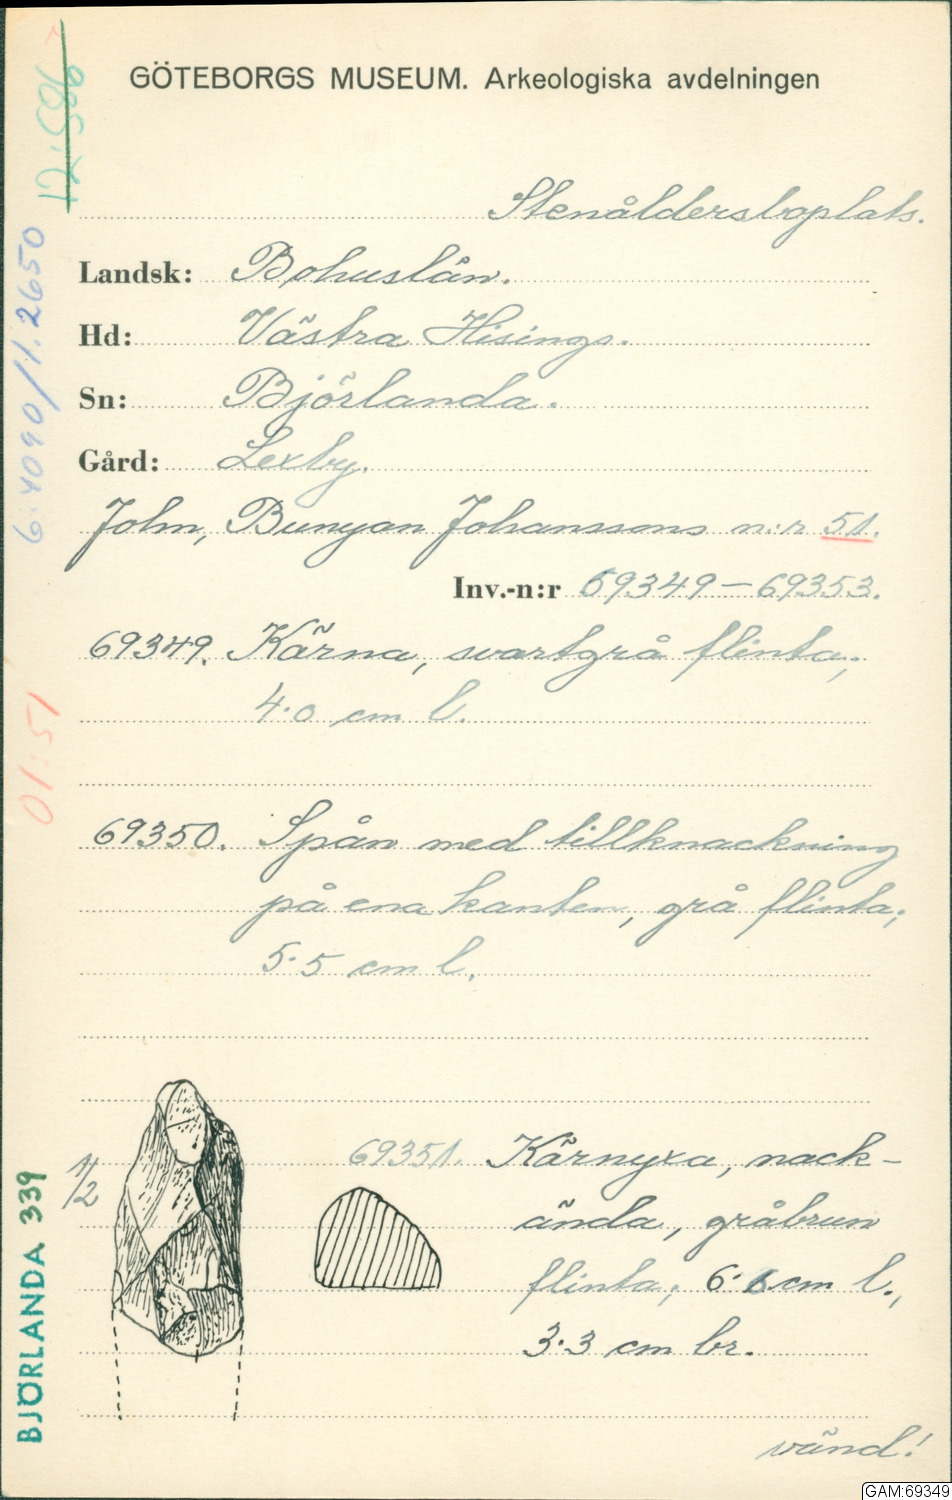 GÖTEBORGS MUSEUM. Arkeologiska avdelningen
Stenåldersboplats.
Landsk: Bohuslän.
Hd: Västra Hisings.
Sn: Björlanda.
Gård: Lexby.
John, Bunyan Johanssons n:r 51.
Inv.-n:r 69349–69353.
69349. Kärna, svartgrå flinta;
4.0 cm l.
69350. Spån med tillknackning
på ena kanten, grå flinta;
5.5 cm l.
1/2
69351. Kärnyxa, nack-
ända, gråbrun
flinta; 6.6 cm l.,
3.3 cm br.
vänd!
12:586
6:4090/1.2650
01:51
BJÖRLANDA 339
GAM:69349